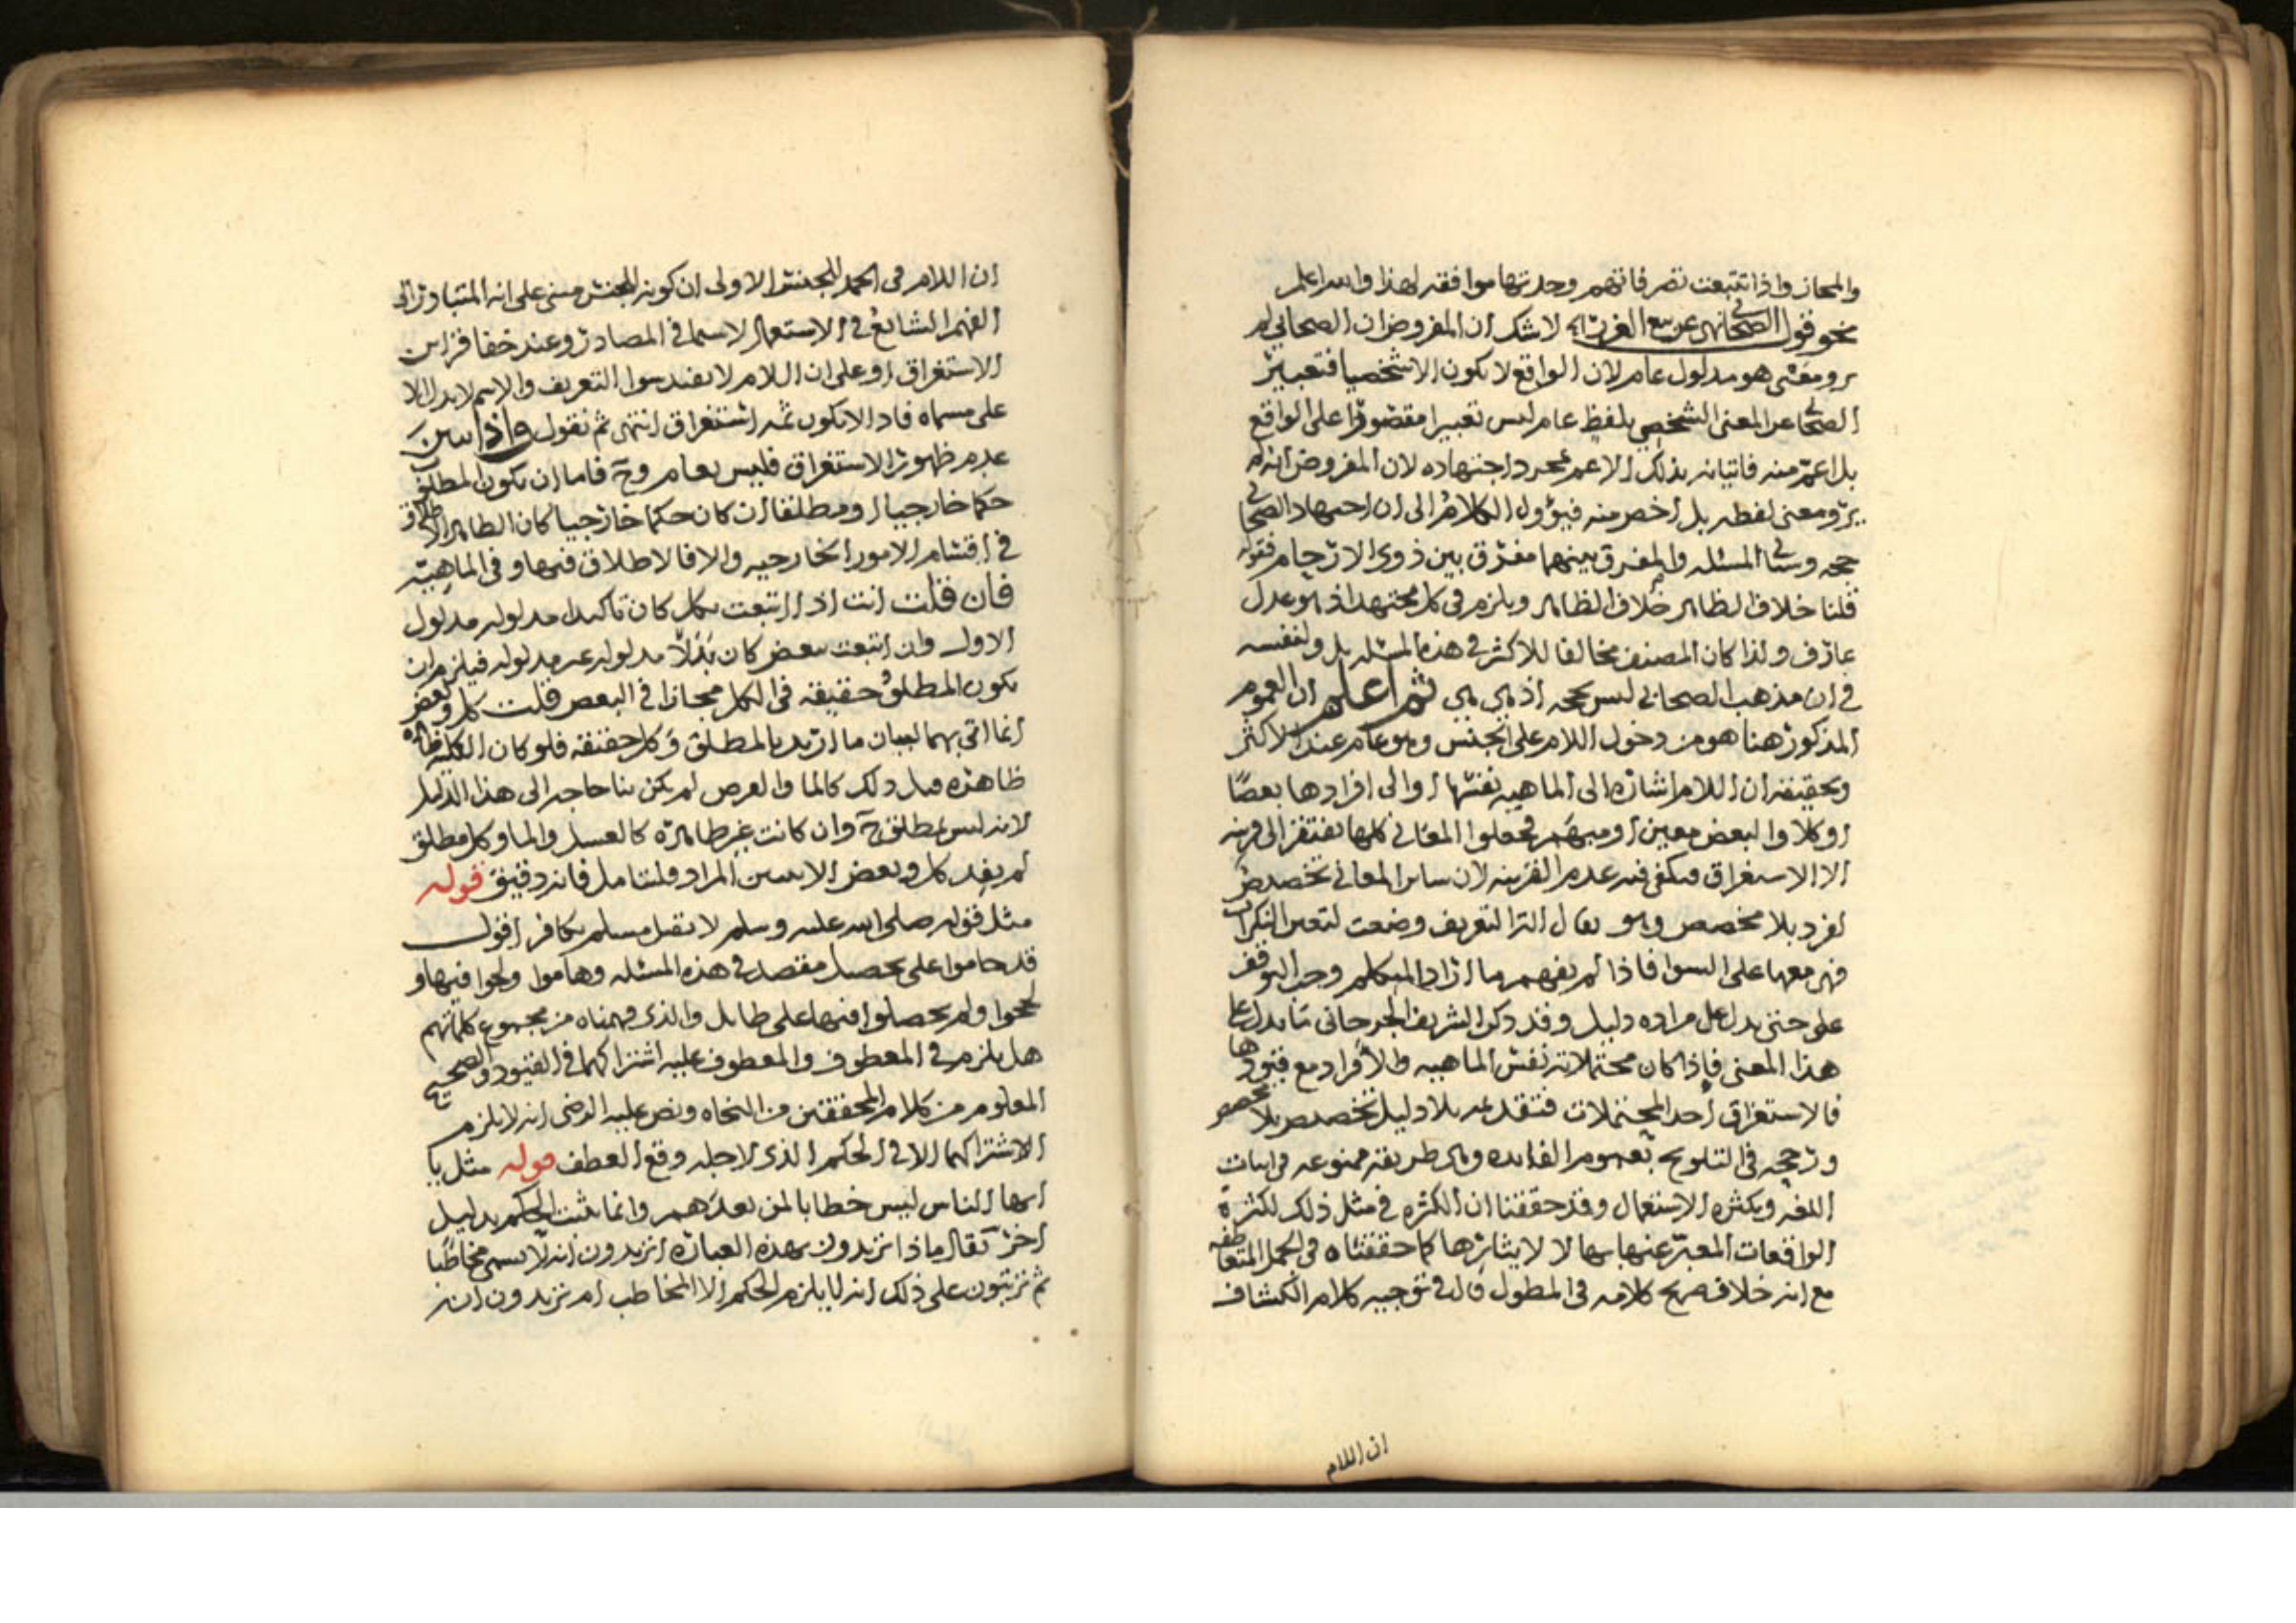 والمجاز واذا تتبعت تصرفاتهم وجدتها موافقه لهذا والله اعلم
نحو قول الصحابي نهى عن بيع الغرر لا شك ان المفروض ان الصحابي لم
يرو معنى هو مدلول عام لان الواقع لا يكون الا شخصيا فتعبير
الصحابي عن المعنى الشخصي بلفظ عام ليس تعبيرا مقصورا على الواقع
بل اعم منه فاتيانه بذلك الاعم مجرد اجتهاده لان المفروض انه لم
يرو معنى لفظه بل اخص منه فيؤول الكلام الى ان اجتهاد الصحابي
حجه وستاتي المسئله والمفرق بينهما مفرق بين ذوي الارحام فقوله
قلنا خلاف الظاهر خلاف الظاهر ويلزم في كل مجتهد اذ هو عدل
عارف ولذا كان المصنف مخالفا للاكثر في هذه المسئله بل ولنفسه
في ان مذهب الصحابي ليس بحجه اذ هي هي ثم اعلم ان العموم
المذكور هنا هو من دخول اللام على الجنس وهو عام عند الاكثر
وتحقيقه ان اللام اشاره الى الماهيه نفسها او الى افرادها بعضا
او كلا والبعض معين او مبهم فجعلوا المعاني كلها تفتقر الى قرينه
الا الاستغراق فيكفي فيه عدم القرينه لان ساير المعاني تخصيص
لفرد بلا مخصص وهو يقال التعريف وضعت لتعين النكرات
فهي معها على السوا فاذا لم يفهم ما اراد المتكلم وجب التوقف
على حتى يدل على مراده دليل وقد ذكر الشريف الجرجاني ما يدل على
هذا المعنى فاذا كان محتملاته نفس الماهيه والافراد مع قيودها
فالاستغراق احد المحتملات فتقديمه بلا دليل تخصيص بلا مخصص
ورجحه في التلويح بعموم الفائده وهي طريقه ممنوعه في اثبات
اللغه وبكثره الاستعمال وقد حققنا ان الكثره في مثل ذلك لكثرة
الواقعات المعبر عنها بها لا لايثارها كما حققناه في الجمل المتعاطفه
مع انه خلاف صريح كلامه في المطول قال في توجيه كلام الكشاف
ان اللام
ان اللام في الحمد للجنس الاولى ان كونه للجنس مبني على انه المتبادر الى
الفهم الشائع في الاستعمال لاسيما في المصادر وعند خفا قراين
الاستغراق او على ان اللام لا يفيد سوا التعريف والاسم لا يدل الا
على مسماه فاذا لا يكون ثمه استغراق انتهى ثم نقول واذا تبين
عدم ظهور الاستغراق فليس بعام وح فاما ان يكون المطلق
حكما خارجيا او مطلقا ان كان حكما خارجيا كان الظاهر الاطلاق
في اقسام الامور الخارجيه والا فالاطلاق فيها وفي الماهيه
فان قلت انت اذا اتبعت بكل كان تاكيدا مدلوله مدلول
الاول وان اتبعت ببعض كان بدلا مدلوله غير مدلوله فيلزم ان
يكون المطلق حقيقه في الكل مجازا في البعض قلت كل وبعض
انما اتي بهما لبيان ما اريد بالمطلق وكل حقيقه فلو كان
ظاهره قبل ذلك كالما والعرض لم يكن بنا حاجه الى هذا الدليل
لانه ليس بمطلق ح وان كانت غير ظاهره كالعسل والما وكل مطلق
لم يفد كل وبعض الا تبيين المراد فليتامل فانه دقيق قوله
مثل قوله صلى الله عليه وسلم لا يقتل مسلم بكافر اقول
قد حاموا على تحصيل مقصد في هذه المسئله وهاموا ولجوا فيها و
لججوا ولم يحصلوا فيها على طايل والذي فهمناه من مجموع كلماتهم
هل يلزم في المعطوف والمعطوف عليه اشتراكهما في القيود والصحيح
المعلوم من كلام المحققين من النحاه ونص عليه الرضي انه لا يلزم
الاشتراكهما الا في الحكم الذي لاجله وقع العطف قوله مثل يا
ايها الناس ليس خطابا لمن بعدهم وانما يثبت الحكم بدليل
اخر يقال ماذا تريدون بهذه العباره اتريدون انه لا يسمى مخاطبا
ثم ترتبون على ذلك انه لا يلزم الحكم الا المخاطب ام تريدون انه